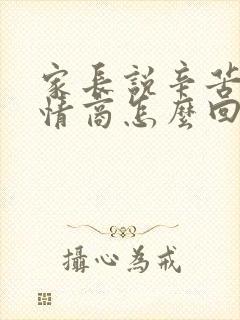 家長説辛苦
情商怎麼回
攝心為戒